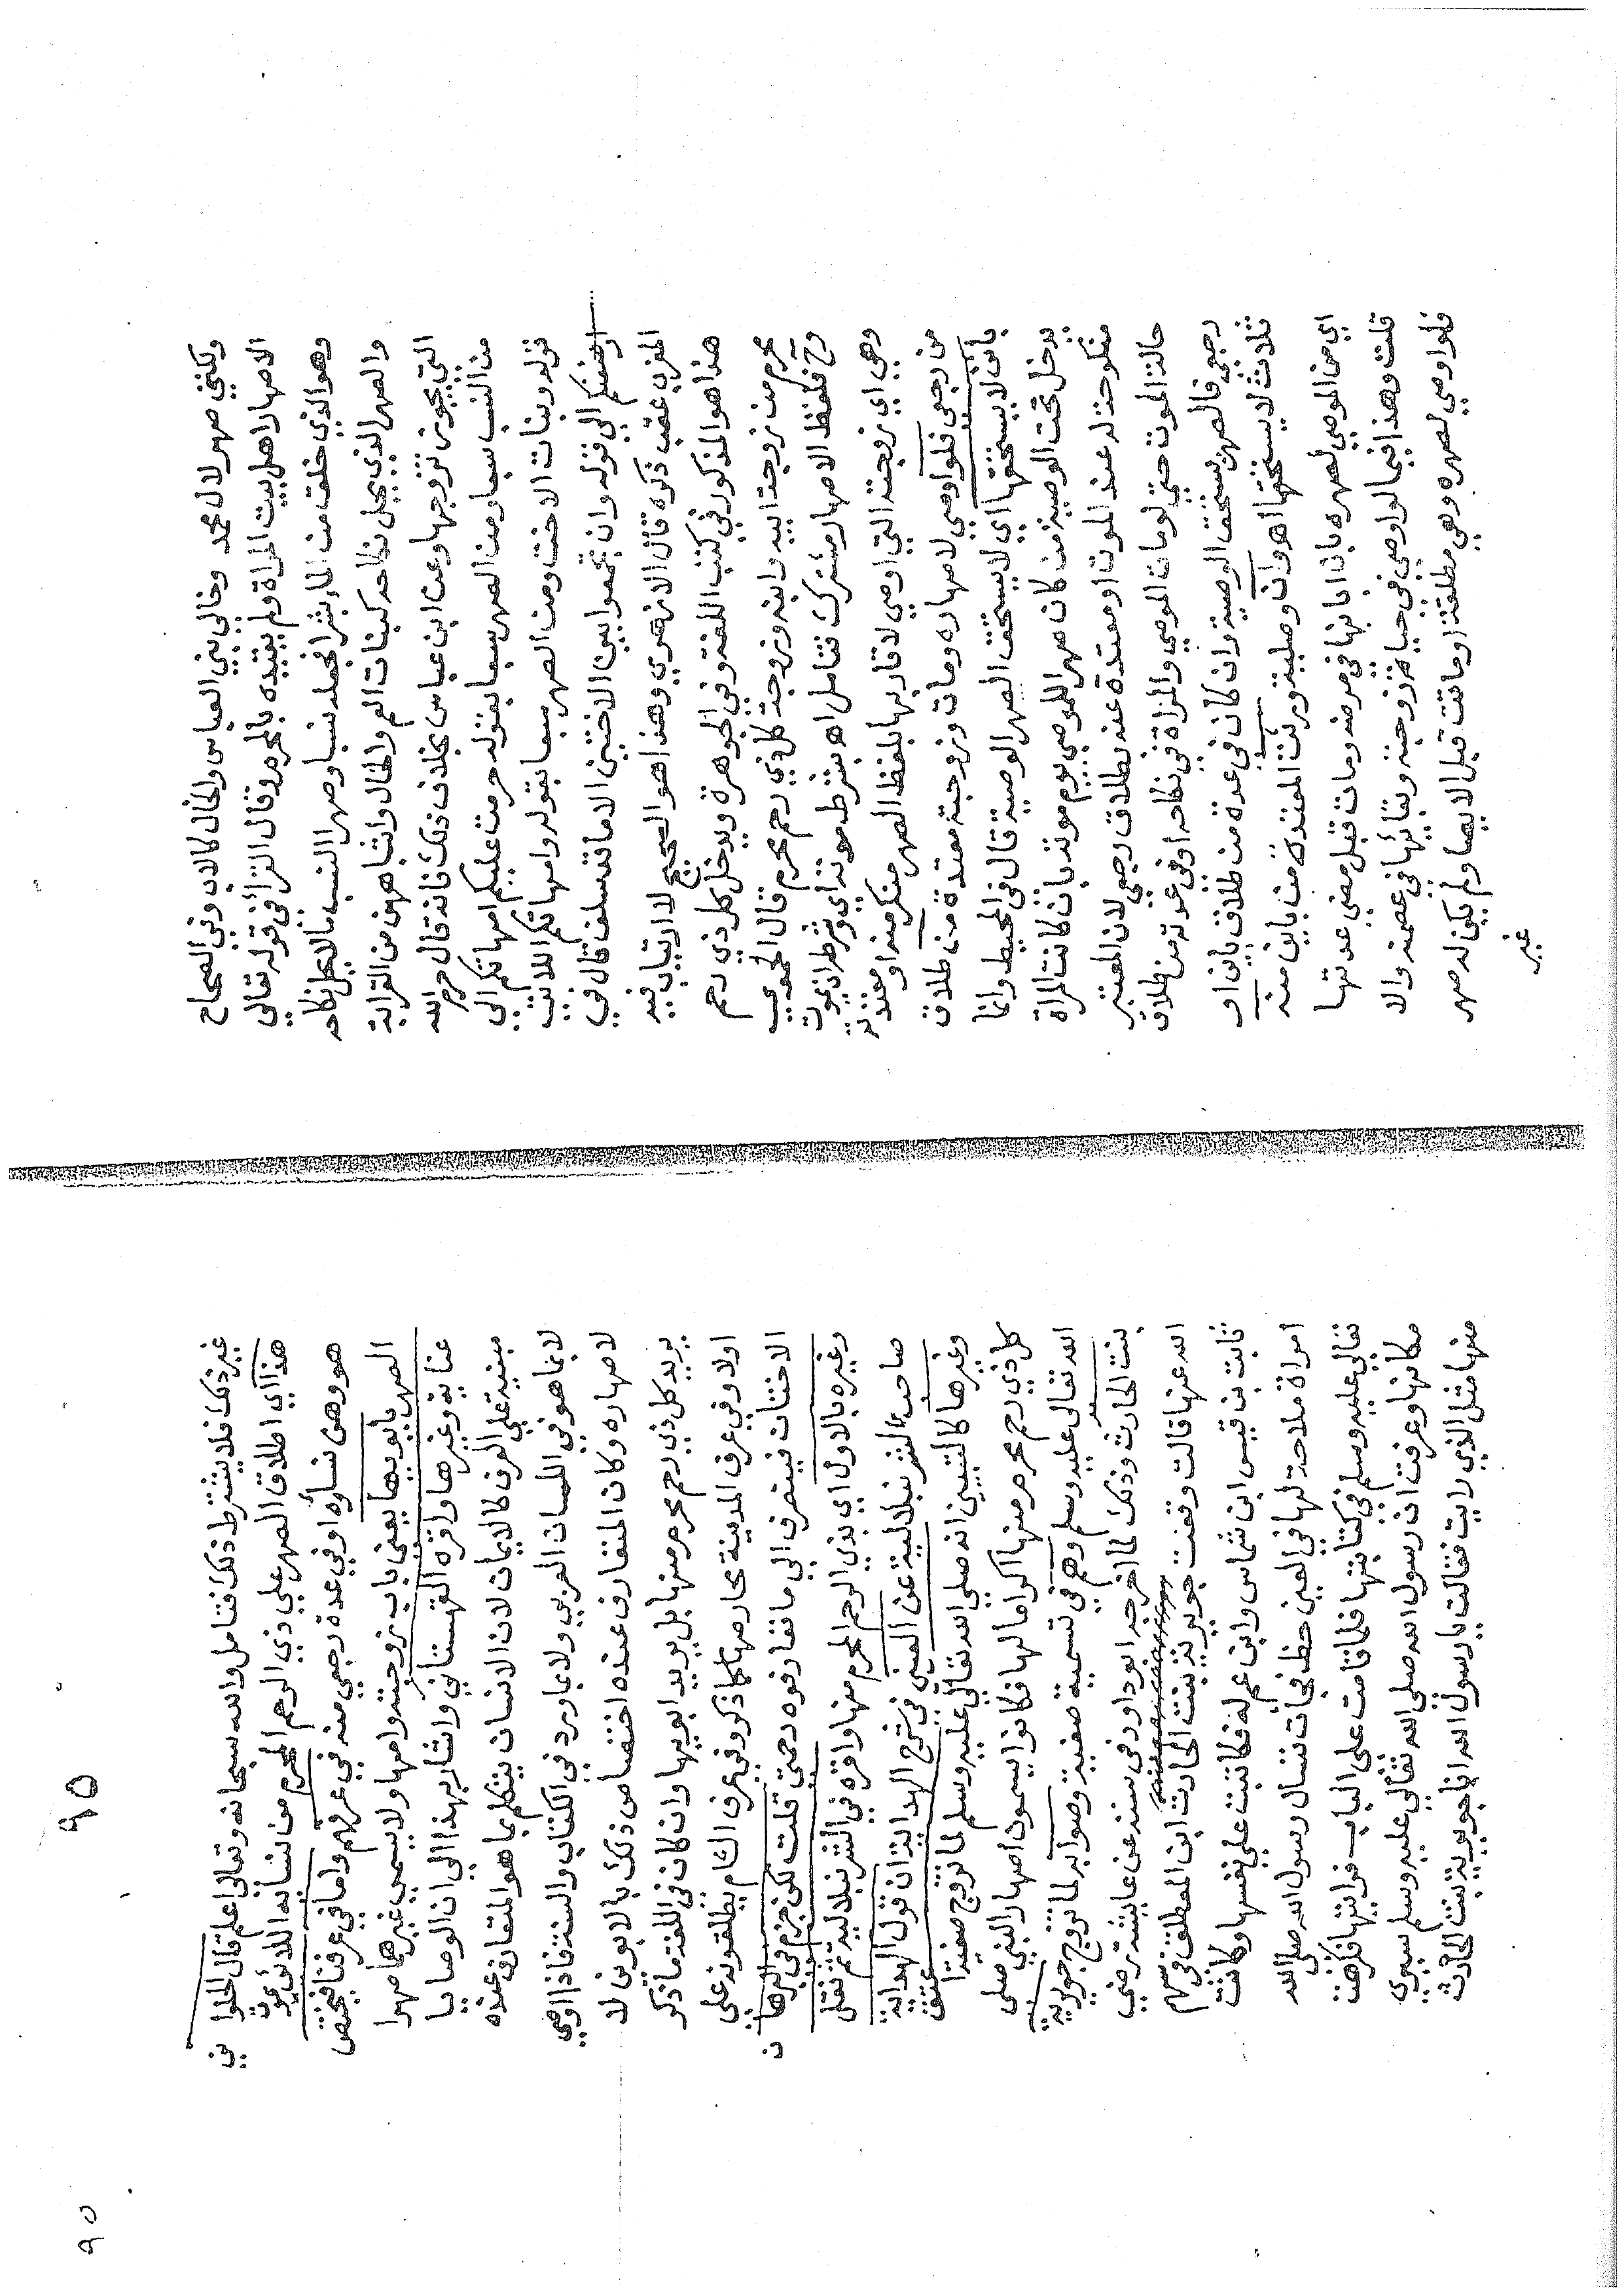 ولكني صهر لال محمد وخالي بني العباس والخال كالاب وفي الصحاح
الاصهار اهل بيت المراة ولم يقيده بالمحرم وقال الزا في قوله تعالي
وهو الذي خلق من الماء بشرا فجعله نسبا وصهرا النسب مالايحل نكاحه
والصهر الذي يحل نكاحه كبنات العم والخال واشباههن من القرابة
التي يجوز تزوجها وعن ابن عباس بخلاف ذلك فانه قال حرم الله
من النسب سبعا ومن الصهر سبعا بقوله حرمت عليكم امهاتكم الي
قوله وبنات الاخت ومن الصهر سبعا بقوله وامهاتكم اللاتي
ارضعنكم الي قوله وان تجمعوا بين الاختين الا ما قد سلف قال في
المغرب عقب ذكره قال الازهري وهذا هو الصحيح لا ارتياب فيه
هذا هو المذكور في كتب اللغة وفي الجوهرة ويدخل كل ذي رحم
محرم من زوجة ابيه وابنه وزوجة كل ذي رحم محرم قال الحموي
وح فلفظ الاصهار مشترك فتامل اه بشرط موته اي وشرط ان يموت
وهي اي زوجته التي اوصي لاقاربها بلفظ الصهر منكوحته او معتدته
من رجعي فلو اوصي لاصهاره ومات وزوجته معتدة من طلاق
باين لا يستحقها اي لا يستحق الصهر الوصية قال في المحيط وانما
يدخل تحت الوصية من كان صهرا للموصي يوم موته بان كانت المراة
منكوحة له عند الموت او معتدة عنه بطلاق رجعي لان المعتبر
حالة الموت حتي لو مات الموصي والمراة في نكاحه او في عدته من طلاق
رجعي فالصهر يستحق الوصية وان كان في عدة من طلاق باين او
ثلاث لا يستحقها اه وان وصلية ورثت المعتدة من باين منه
اي من الموصي لصهره بان ابانها في مرضه ومات قبل مضي عدتها
قلت وهذا فيما لو اوصي في حياة زوجته وبقائها في عصمته والا
فلو اوصي لصهره وهي مطلقة او ماتت قبل الايصا ولم يكن له صهر
غير
٩٥
٩٥
غير ذلك فلا يشترط ذلك فتامل والله سبحانه وتعالى اعلم قال الحلواني
هذا اي اطلاق الصهر علي ذي الرحم المحرم من نسايه اللائي يموت
هو وهن نساؤه او في عدة رجعي منه في عرفهم واما في عرفنا فيختص
الصهر بابويها يعني باب زوجته وامها ولا يسمي غيرهما صهرا
عناية وغيرها واقره القهستاني واشار بهذا الي ان الوصايا
مبنية علي العرف كالايمان لان الانسان يتكلم بما هو المتعارف عنده
لا بما هو في اللسان العربي ولا بما ورد في الكتاب والسنة فاذا اوصي
لاصهاره وكان المتعارف عنده اختصاص ذلك بالابوين لا
يريد كل ذي رحم محرم منها بل يريد ابويها وان كان في اللغة ما ذكر
اولا وفي عرف المدينة محارمها كما ذكر وفي عرف الشام يطلقونه علي
الاختان فيتصرف الي ما تعارفوه رحمتي قلت لكن جزم في البرهان
وغيره بالاول اي بذي الرحم المحرم منها واقره في الشرنبلالية ثم نقل
صاحب الشرنبلالية عن العيني في شرح الهداية ان قول الهداية
وغيرها كالتبيين انه صلي الله تعالي عليه وسلم لما تزوج صفية اعتق
كل ذي رحم محرم منها اكراما لها فكانوا يسمون اصهار النبي صلى
الله تعالى عليه وسلم وهم في تسمية صفية وصوابه لما تزوج جويرية
بنت الحارث وذلك لما اخرجه ابو داود في سننه عن عايشة رضي
الله عنها قالت وقعت جويرية بنت الحارث ابن المصطلق في سهم
ثابت بن قيس ابن شماس وابن عم له فكاتبت علي نفسها وكانت
امراة ملاحة لها في العين حظ فجأت تسال رسول الله صلى الله
تعالي عليه وسلم في كتابتها فلما قامت على الباب فرايتها فكرهت
مكانها وعرفت ان رسول الله صلى الله تعالي عليه وسلم سيري
منها مثل الذي رايت فقالت يا رسول الله انا جويرية بنت الحارث